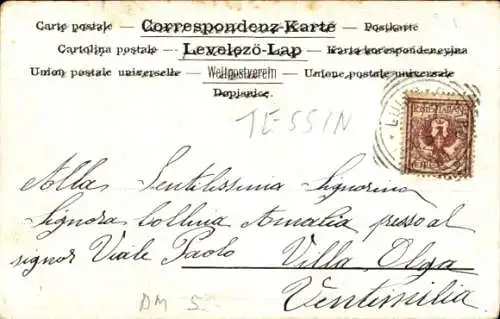 Carte postale — Correspondenz-Karte — Postkarte
Cartolina postale — Levelező-Lap — Karta korespondencyjna
Union postale universelle — Weltpostverein — Unione postale universale
Dopisnice.
TESSIN
Alla Gentilissima Signorina
Signora Collina Amalia presso al
signor Viale Paolo Villa Olga
Ventimilia
DM 5